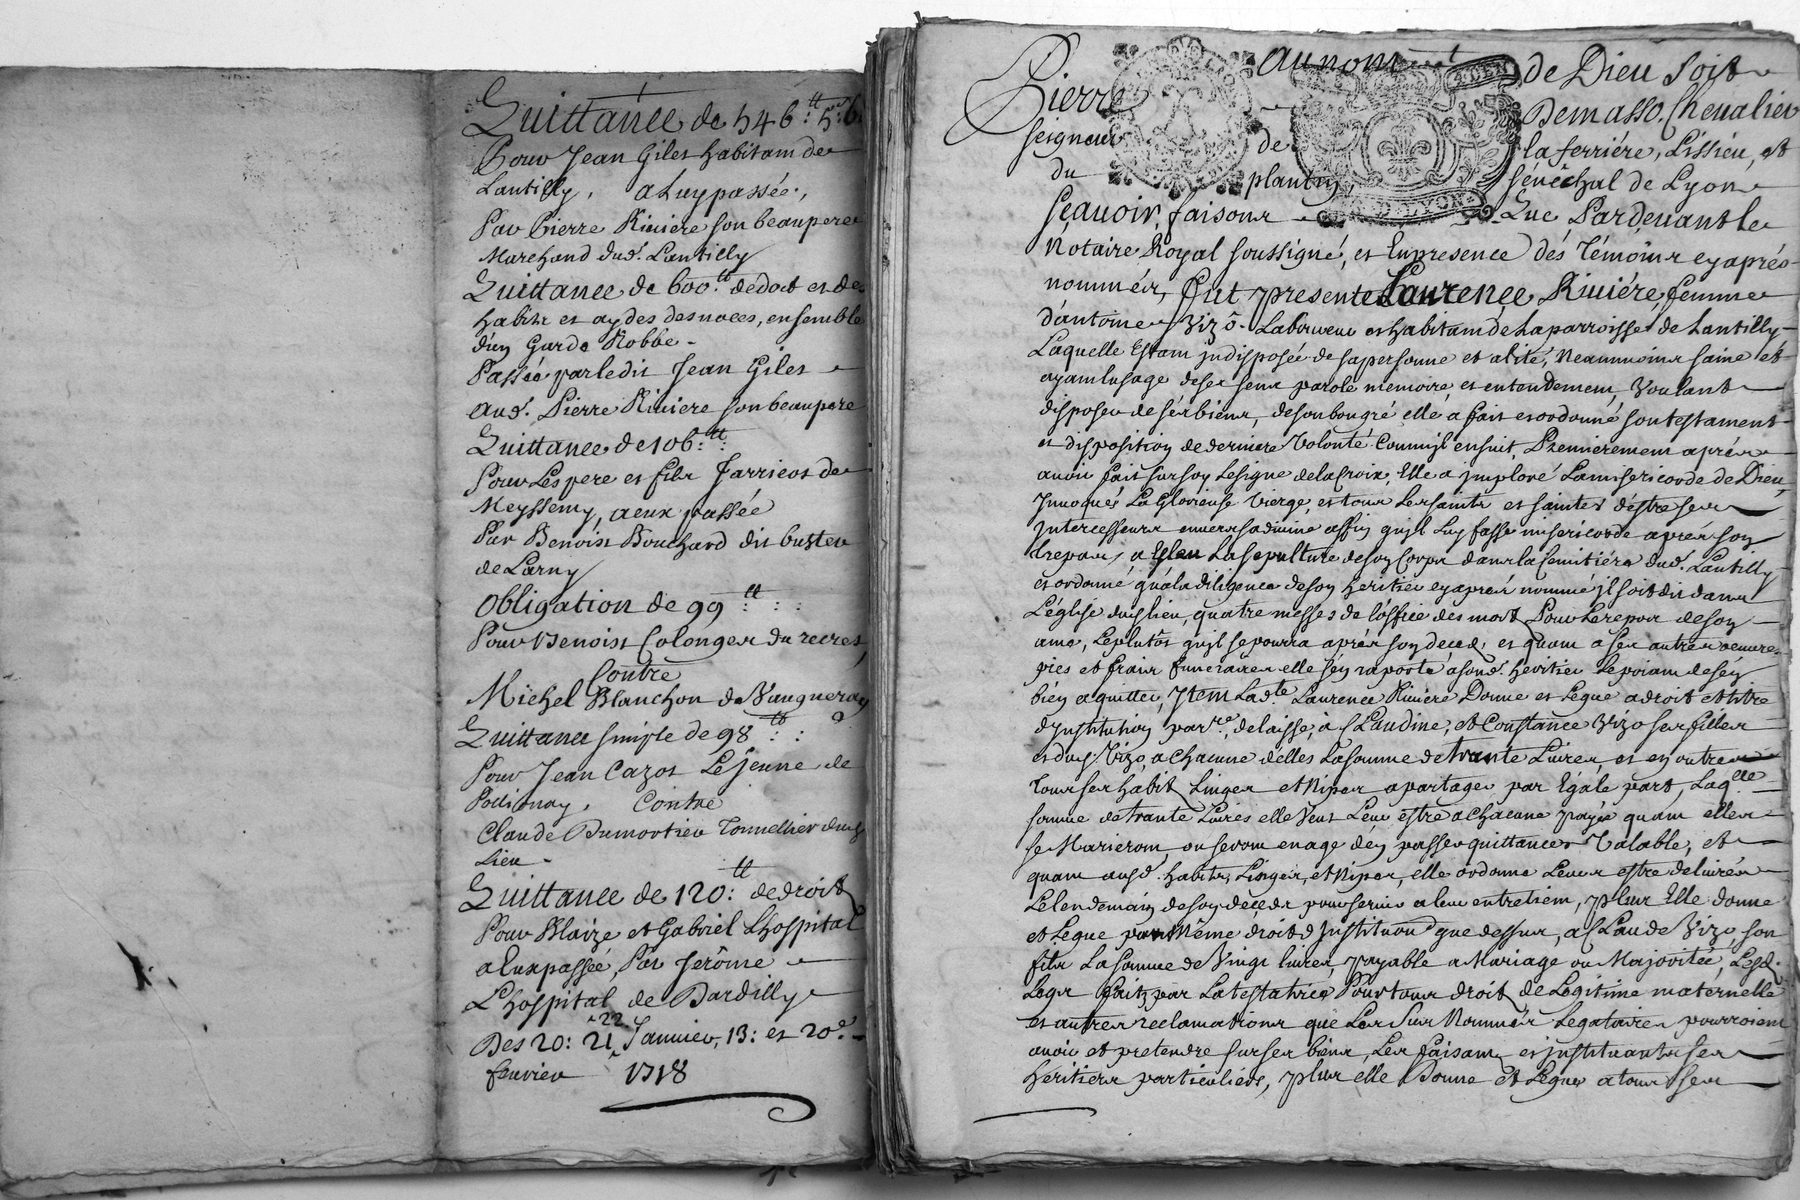 Quittance de 546 ₶: 5: 6
Pour Jean Giles habitam de
Lantilly, a Luy passée,
Par Pierre Riviere son beaupere
Marchand dud. Lantilly
Quittance de 600 ₶ dédot et de
habitz et aydes des noces, ensemble
d'un Garde Robbe
Passée par ledit Jean Giles
aud. Pierre Riviere son beaupere
Quittance de 106 ₶
Pour Les pere et filz Jarricot de
Meyssemy, a eux passée
Par Benoist Bouchard dit buster
de Larny
Obligation de 99 ₶
Pour Benoist Colonges du recret
Contre
Michel Blanchon de Vaugneray
Quittance simple de 98 ₶
Pour Jean Cazot Le Jeune de
Pollionay. Contre
Claude Dumortier Tonnellier dud
Lieu
Quittance de 120 ₶: de droit
Pour Blaize et Gabriel Lhospital
a Eux passée, Par Jerôme
L'hospital de Dardilly
Des 20: 21 22 Janvier, 13: et 20e.
fevrier 1718
Au nom de Dieu soit
Pierre Demasso, Chevalier
seigneur de la ferriére, Lissieu, et
du plantin, Senéchal de Lyon
Sçavoir faisons Que Pardevant le
Notaire Royal soussigné, et En presence des Témoins cy aprés
nommés, fut presente Laurence Riviére, femme
d'antoine Vizo Laboureur et habitam de la parroisse de Lantilly
Laquelle Estam indisposée de sa personne et alité, Neanmoins saine et
ayam Lusage de ses sens parole memoire, et entendemem, voulant
disposer de sés biens, de son bon gré elle a fait et ordonné son testament
et disposition de derniere volonté comm'il ensuit, Premierement aprés
avoir fait sur soy Le signe de la Croix, Elle a imploré La misericorde de Dieu,
Invoqués La Glorieuse vierge, et tous Les saints et saintes d'éstre ses
Intercesseurs envers sa divine affin qu'il Luy fasse misericorde aprés son
trepas, a Esleu La sepulture de son Corps dans la Cemitiére dud. Lantilly
et ordonné qu'a la diligence de son heritier cy aprés nommé il soit dit dans
L'églize dud. lieu, quatre messes de L'office des mort Pour Le repos de son
ame, Le plutôt qu'il se pourra aprés son deced, et quam a ses autres oeuvres
pies et frais funeraires elle s'én raporte a sond. heritier Le priam de s'én
bien aquitter, Item Lad.te Laurence Riviére Donne et Legue a droit et titre
d'institution par.re, delaisse, à Claudine, et Constance Vizo ses filles
et dud. Vizo, a chacune d'elles La somme de trante Livres, et en outre
Tous ses habit, Linges et Nipes a partager par Egale part, Laq.lle
somme de trante Livres elle veut Leur estre a chacune payée quam elles
se Marierom ou serom en age d'en passer quittances Valable, et
quam ausd. habits, Linges, et Nipes, elle ordonne Leurs estre delivrés
Le lendemain de son decedz pour servir a leur entretiem, plus Elle donne
et Legue par Même droit d'institution que dessus, a Claude Vizo son
filz La somme de Vingt livres, payable a Mariage ou Majoritée, Lesd.
Legs faitz par La testatrice Pour tous droit de Legitime maternelle
et autres reclamations que Les sus Nommés Legataires pourroient
avoir et pretendre sur ses biens, Les faisam et instituants ses
héritiers particuliers, plus elle Donne et Legue a tous ses